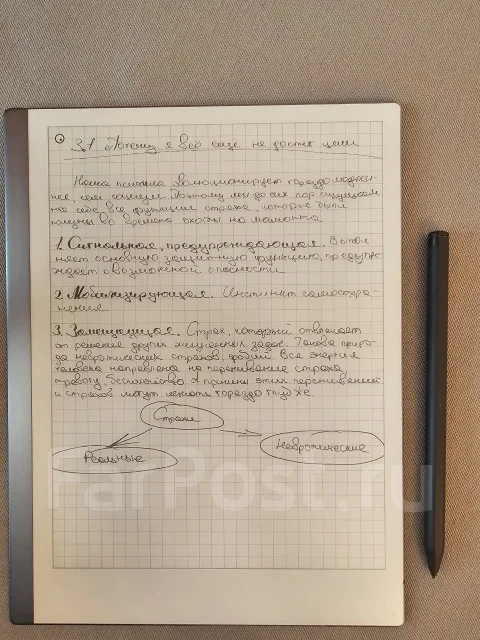 3.1 Почему я всё ещё не достиг цели
Наша психика эволюционирует гораздо медлен-
нее, чем социум. Поэтому мы до сих пор ощущаем
на себе все функции страха, которые были
полезны во времена охоты на мамонта
1. Сигнальная, предупреждающая. Выпол
няет основную защитную функцию, предупре-
ждает о возможной опасности
2. Мобилизирующая. Инстинкт самосохра-
нения
3. Замещающая. Страх, который отвлекает
от решения других жизненных задач. Такова приро-
да невротических страхов, фобий. Вся энергия
человека направлена на переживание страха,
тревогу, беспокойство. А причины этих переживаний
и страхов могут лежать гораздо глубже.
Страхи
Реальные
Невротические
FarPost.ru